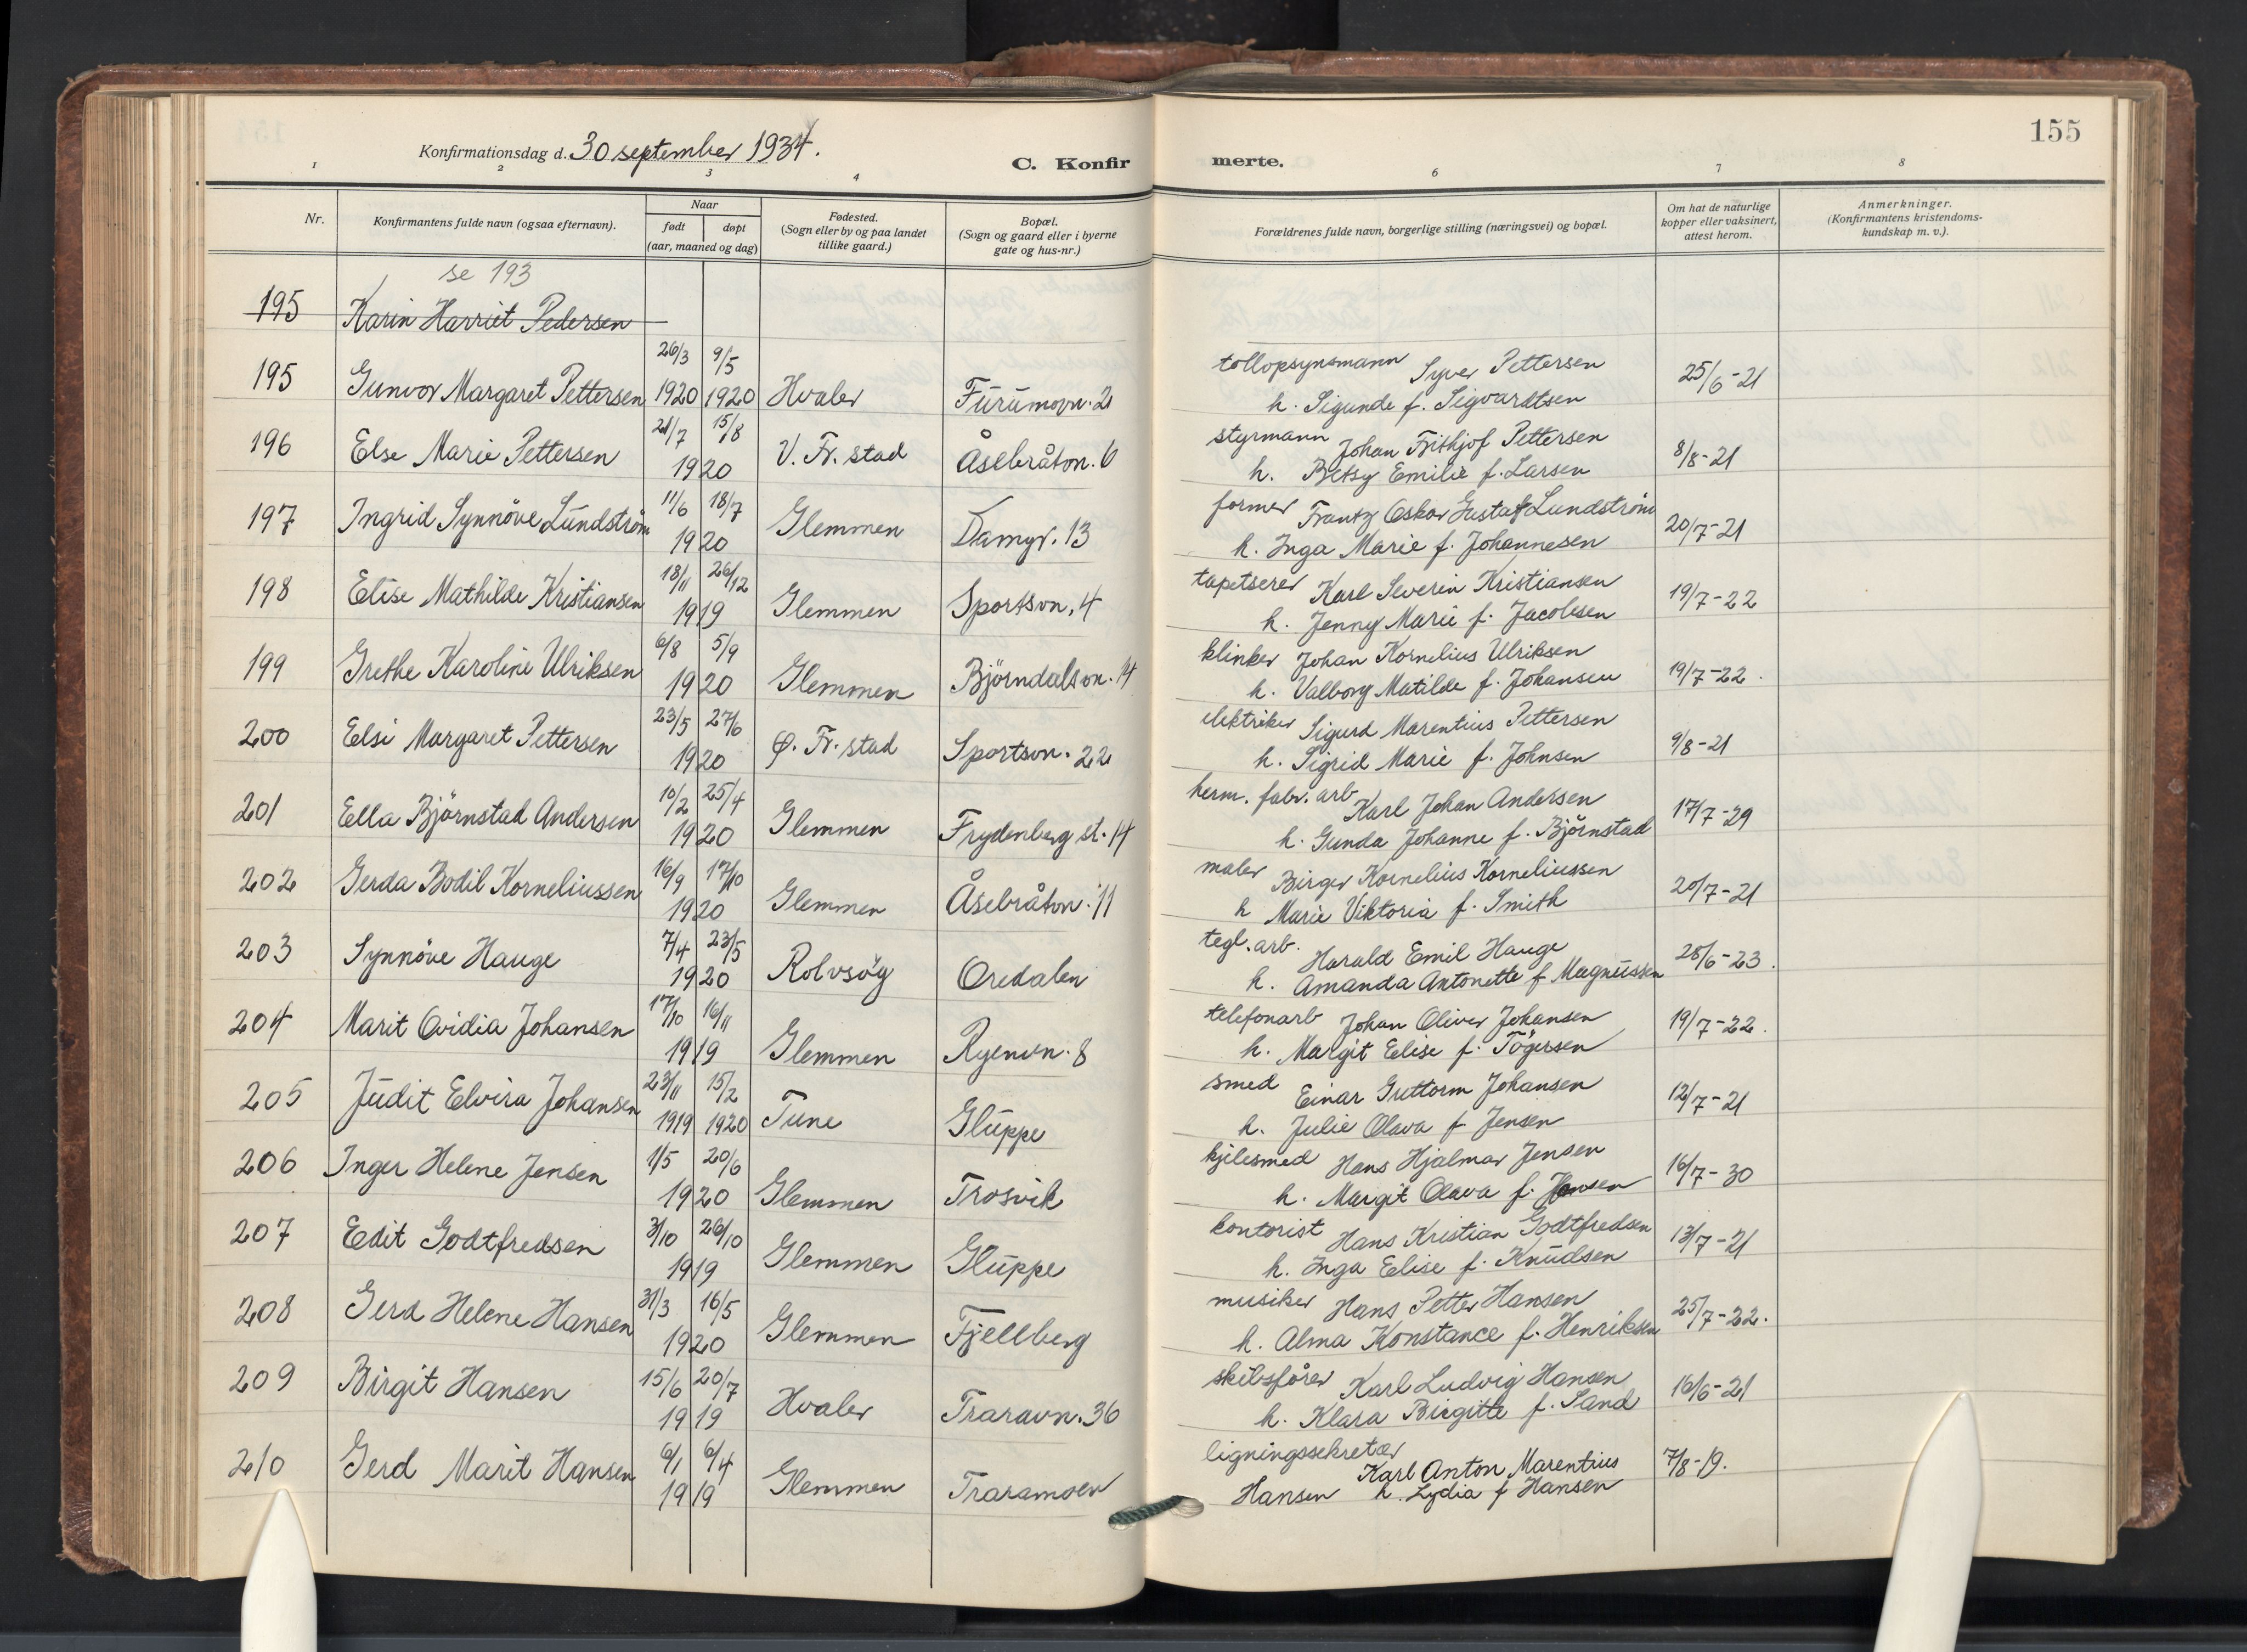 155
Konfirmationsdag d. 30 september 1934.
C. Konfirmerte.
1 2 3 4 6 7 8
Nr.
Konfirmantens fulde navn (ogsaa efternavn).
Naar
født døpt
(aar, maaned og dag)
Fødested.
(Sogn eller by og paa landet
tillike gaard.)
Bopæl.
(Sogn og gaard eller i byerne
gate og hus-nr.)
Forældrenes fulde navn, borgerlige stilling (næringsvei) og bopæl.
Om hat de naturlige
kopper eller vaksinert,
attest herom.
Anmerkninger.
(Konfirmantens kristendoms-
kundskap m. v.).
se 193
195 Karin Harriet Pedersen
26/3 9/5 tollopsynsmann Syver Pettersen
195 Gunvor Margaret Pettersen 1920 1920 Hvaler Furumovn. 21 h. Sigunde f. Sigvardtsen 25/6-21
21/7 15/8 styrmann Johan Frithjof Pettersen
196 Else Marie Pettersen 1920 V. Fr. stad Åsebråtvn. 6 h. Betsy Emilie f. Larsen 8/8-21
11/6 18/7 former Frantz Oskar Gustaf Lundström
197 Ingrid Synnöve Lundström 1920 Glemmen Damyr. 13 h. Inga Marie f. Johannesen 20/7-21
18/11 26/12 tapetserer Karl Severin Kristiansen
198 Elise Mathilde Kristiansen 1919 Glemmen Sportsvn. 4 h. Jenny Marie f. Jacobsen 19/7-22
6/8 5/9 klinker Johan Kornelius Ulriksen
199 Grethe Karoline Ulriksen 1920 Glemmen Björndalsvn. 14 h. Valborg Matilde f. Johansen 19/7-22.
23/5 27/6 elektriker Sigurd Marentius Pettersen
200 Elsi Margaret Pettersen 1920 Ø. Fr. stad Sportsvn. 22 h. Sigrid Marie f. Johnsen 9/8-21
10/2 25/4 herm. fabr. arb. Karl Johan Andersen
201 Ella Björnstad Andersen 1920 Glemmen Frydenberg st. 14 h. Gunda Johanne f. Björnstad 17/7-29
16/9 17/10 maler Birger Kornelius Korneliussen
202 Gerda Bodil Korneliussen 1920 Glemmen Åsebråtvn. 11 h Marie Viktoria f. Smith 20/7-21
7/4 23/5 tegl. arb. Harald Emil Hauge
203 Synnöve Hauge 1920 Rolvsög Oredalen h. Amanda Antonette f Magnussen 28/6-23.
17/10 16/11 telefonarb Johan Oliver Johansen
204 Marit Ovidia Johansen 1919 Glemmen Ryenvn. 8 h. Margit Elise f. Tögersen 19/7-22.
23/11 15/2 smed Einar Guttorm Johansen
205 Judit Elvira Johansen 1919 1920 Tune Gluppe h. Julie Olava f. Jensen 12/7-21
1/5 20/6 kjelesmed Hans Hjalmar Jensen
206 Inger Helene Jensen 1920 Glemmen Trosvik h. Margit Olava f. Hansen 16/7-30
3/10 26/10 kontorist Hans Kristian Godtfredsen
207 Edit Godtfredsen 1919 Glemmen Gluppe h. Inga Elise f. Knudsen 13/7-21
31/3 16/5 musiker Hans Petter Hansen
208 Gerd Helene Hansen 1920 Glemmen Fjellberg h. Alma Konstance f. Henriksen 25/7-22.
15/6 20/7 skibsfører Karl Ludvig Hansen
209 Birgit Hansen 1919 Hvaler Traravn. 36 h. Klara Birgitte f. Sand 16/6-21
6/1 6/4 ligningssekretær Karl Anton Marentius
210 Gerd Marit Hansen 1919 Glemmen Traramoen Hansen h. Lydia f Hansen 7/8-19.